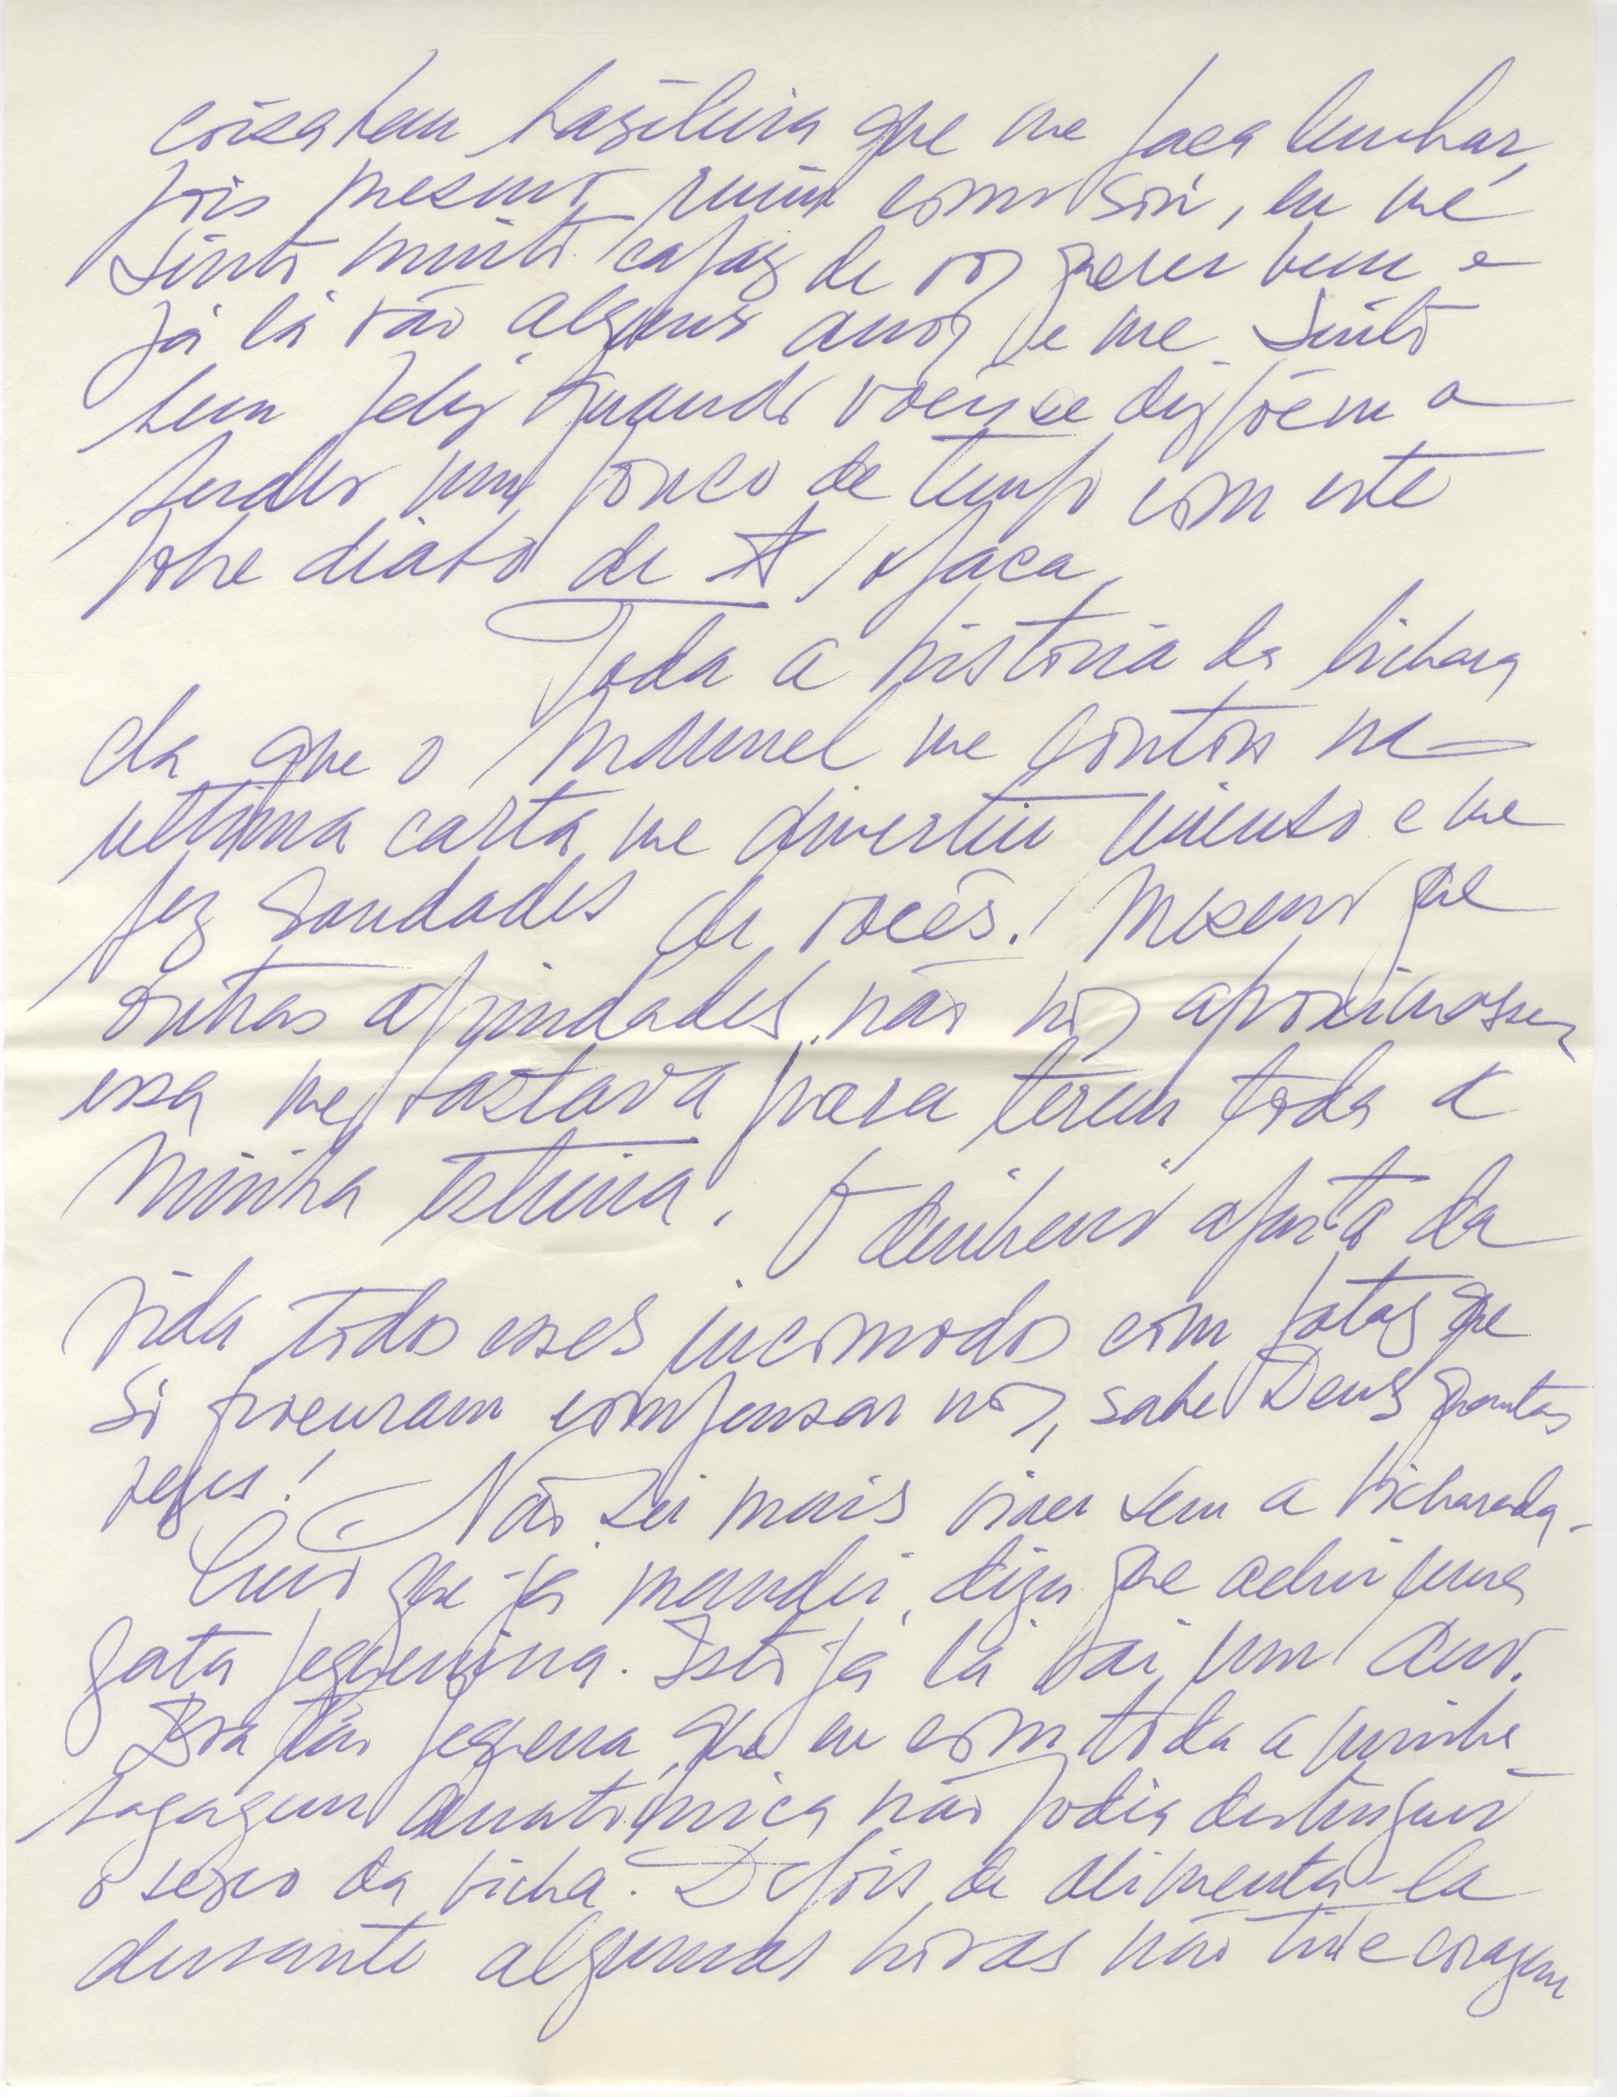 coisa bem brasileira que me faça lembrar,
pois mesmo ruim como sou, eu me
sinto muito capaz de vos querer bem e
já lá vão alguns anos, e me sinto
bem feliz quando vocês se dispõem a
perder um pouco de tempo com este
pobre diabo de
Toda a historia da bichara
da que o Manuel me contou na
ultima carta me divertiu imenso e me
fez saudades de vocês. Mesmo que
outras afinidades não nos aproximassem
essa me bastava para terem toda a
minha estima. O dinheiro afasta da
vida todos esses incomodos com gatos que
só procuram compensar nos, sabe Deus quantas
vezes! Não sei mais viver sem a bicharada.
Creio que já mandei dizer que achei uma
gata pequenina. Isto já lá vai um ano.
Era tão pequena que eu com toda a minha
bagagem anatómica não podia destinguir
o sexo da bicha. Depois de alimenta-la
durante algumas horas não tive coragem